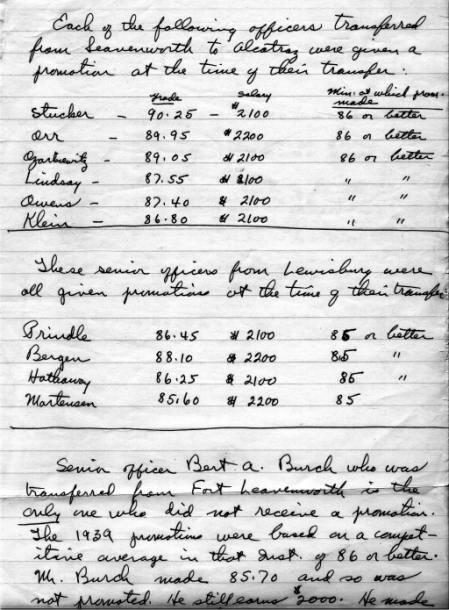 Each of the following officers transferred
from Leavenworth to Alcatraz were given a
promotion at the time of their transfer:
Grade Salary Min. at which prom. made
Stucker - 90.25 - $2100 86 or better
Orr - 89.95 $2200 86 or better
Ozarkewitz - 89.05 $2100 86 or better
Lindsay - 87.55 $2100 " "
Owens - 87.40 $2100 " "
Klein - 86.80 $2100 " "
These senior officers from Lewisburg were
all given promotions at the time of their transfer.
Prindle 86.45 $2100 85 or better
Bergen 88.10 $2200 85 "
Hathaway 86.25 $2100 85 "
Martensen 85.60 $2200 85
Senior officer Bert A. Burch who was
transferred from Fort Leavenworth is the
only one who did not receive a promotion.
The 1939 promotions were based on a compet-
itive average in that Inst. of 86 or better.
Mr. Burch made 85.70 and so was
not promoted. He still earns $2000. He made